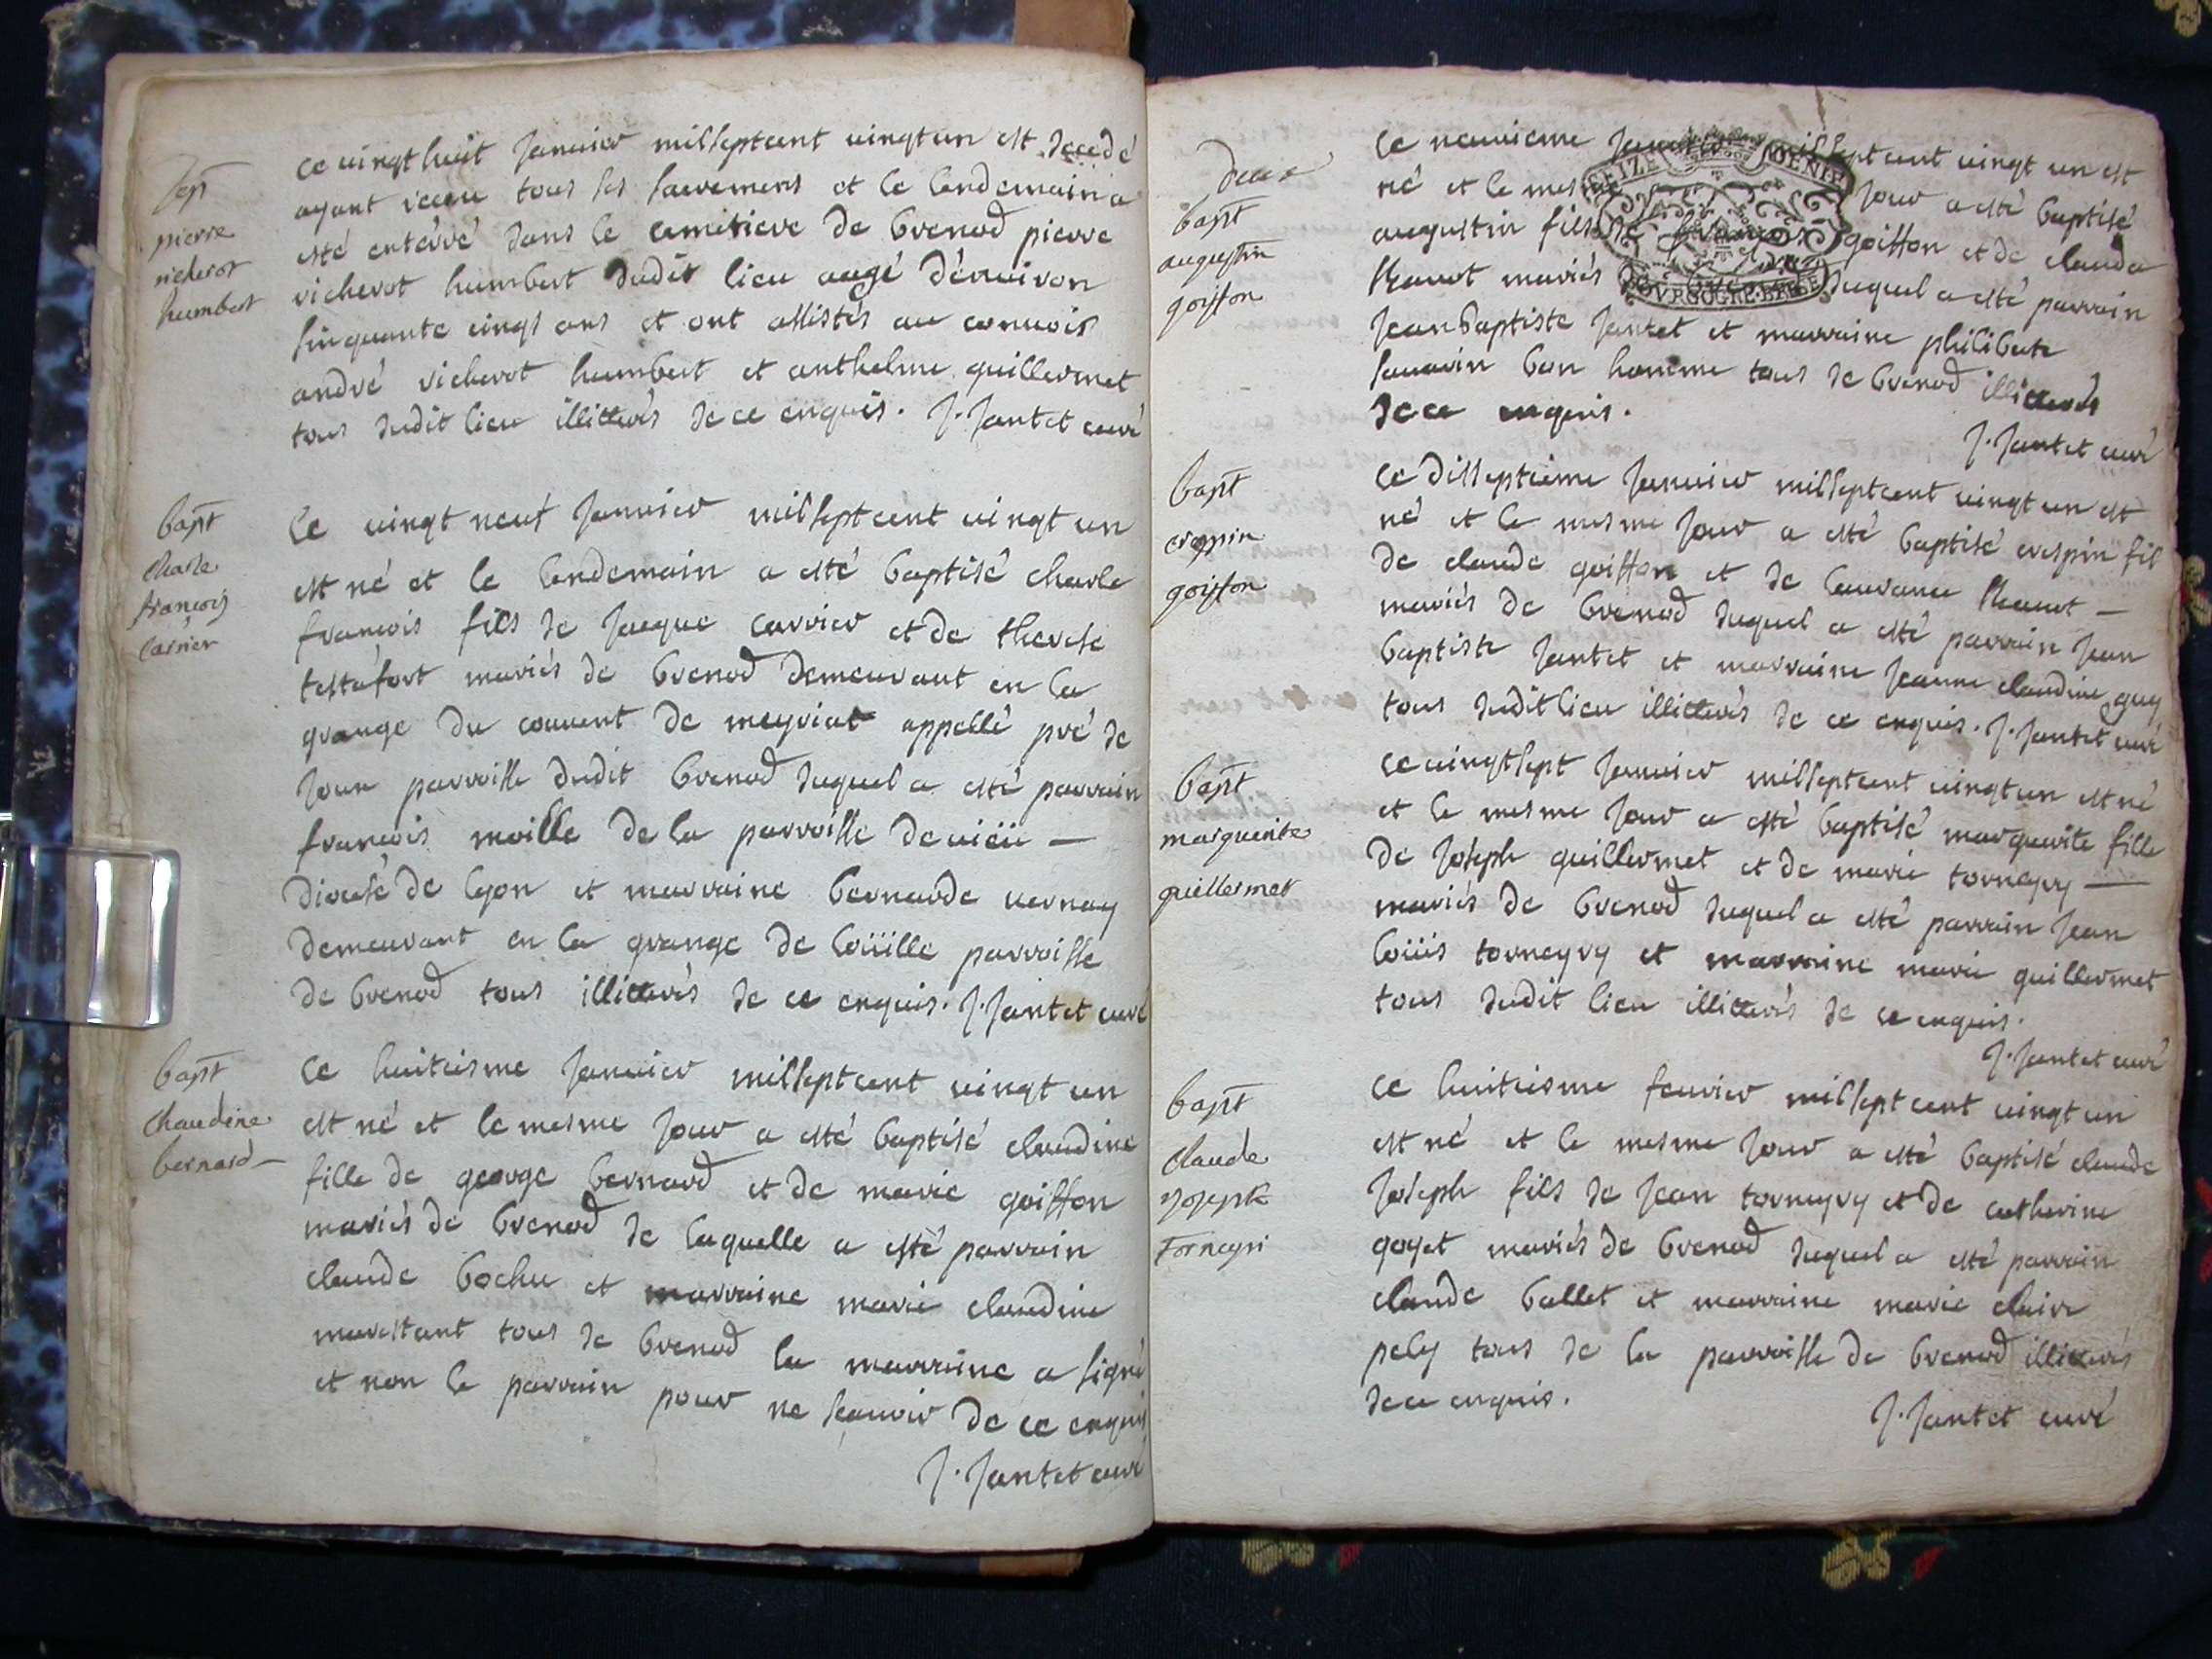 Sep
pierre
richerot
humbert
ce vingt huit Janvier mil sept cent vingt un est decedé
ayant receu tous ses sacremens et le lendemain a
esté entérré dans le cemitiere de brenod pierre
richerot humbert dudit lieu augé dénviron
sinquante cinqt ans et ont assistés au convoir
andré richerot humbert et anthelme guillermet
tous dudit lieu illitterés de ce enquis. J. Jantet curé
bapt
charle
francois
carrier
le vingt neuf Janvier mil sept cent vingt un
est né et le lendemain a esté baptisé charle
francois fils de Jacque carrier et de therese
testafort mariés de brenod demeurant en la
grange du couvent de meyriat appellé pré de
Joux parroisse dudit brenod duquel a esté parrain
francois moille de la parroisse de vieü —
diocese de lyon et marraine bernarde vernay
demeurant en la grange de loüille parroisse
de brenod tous illitterés de ce enquis. J. Jantet curé
bapt
claudine
bernard —
ce huitiesme Janvier mil sept cent vingt un
est né et le mesme Jour a esté baptisé claudine
fille de george bernard et de marie goiffon
mariés de brenod de laquelle a esté parrain
claude bochu et marraine marie claudine
marestant tous de brenod la marraine a signé
et non le parrain pour ne scavoir de ce enquis
J. Jantet curé
deux
bapt
augustin
goiffon
ce neuvieme Janvier mil sept cent vingt un est
né et le mesme Jour a esté baptisé
augustin fils de goiffon et de claude
mariés duquel a esté parrain
Jean baptiste Jantet et marraine philiberte
savarin bon homme tous de brenod illitterés
de ce enquis.
J. Jantet curé
bapt
crespin
goiffon
ce disseptieme Janvier mil sept cent vingt un est
né et le mesme Jour a esté baptisé crespin fils
de claude goiffon et de laurance —
mariés de brenod duquel a esté parrain Jean
baptiste Jantet et marraine Jeanne claudine guy
tous dudit lieu illitterés de ce enquis. J. Jantet curé
bapt
marguerite
guillermet
ce vingt sept Janvier mil sept cent vingt un est né
et le mesme Jour a esté baptisé marguerite fille
de Joseph guillermet et de marie torneyry —
mariés de brenod duquel a esté parrain Jean
loüis torneyry et marraine marie guillermet
tous dudit lieu illitterés de ce enquis.
J. Jantet curé
bapt
claude
Joseph
Torneyri
ce huitiesme fevrier mil sept cent vingt un
est né et le mesme Jour a esté baptisé claude
Joseph fils de Jean torneyry et de catherine
goyet mariés de brenod duquel a esté parrain
claude ballet et marraine marie claire
pely tous de la parroisse de brenod illitterés
de ce enquis.
J. Jantet curé